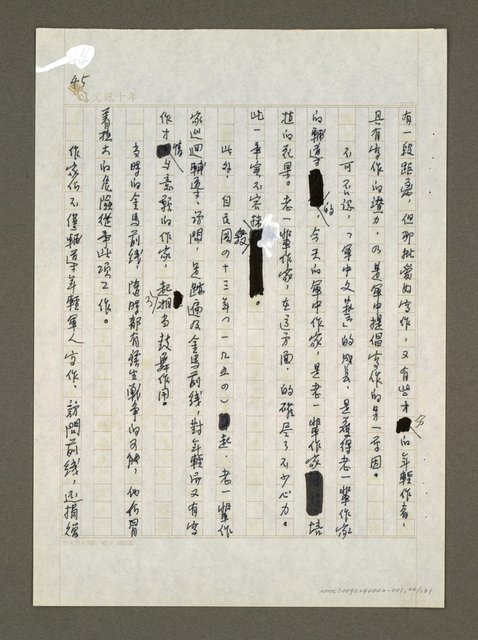 45
文訊十年
有一段距離，但那批愛好寫作，又有些才分的年輕作者，
具有寫作的潛力，乃是軍中提倡寫作的另一原因。
不可不說，「軍中文藝」的成長，是獲得老一輩作家
的輔導的，今天的軍中作家，是老一輩作家培
植的花果。老一輩作家，在這方面，的確盡了不少心力。
此一事實不容抹殺。
此外，自民國四十三年（一九五四）起，老一輩作
家巡迴輔導、訪問，足跡遍及金馬前線，對年輕而又有寫
作才情與意願的作家，起了相當鼓舞作用。
當時的金馬前線，隨時都有發生戰爭的可能，他們冒
著極大的危險從事此項工作。
作家們不僅輔導年輕軍人寫作、訪問前線，還捐贈
NML20090240002-001